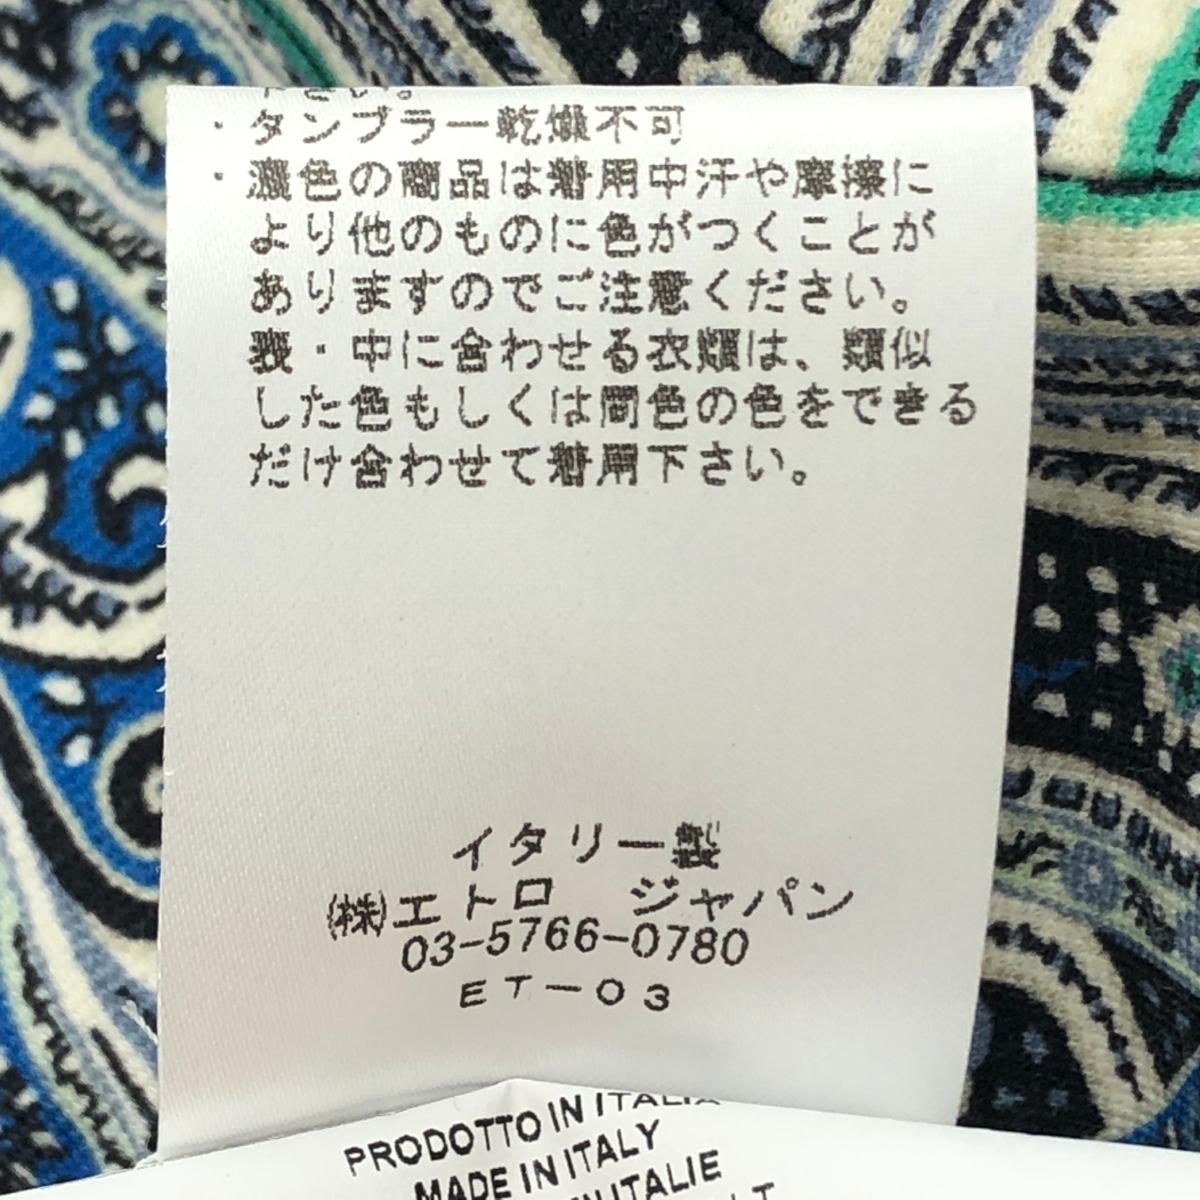 下さい。
・タンブラー乾燥不可
・濃色の商品は着用中汗や摩擦に
より他のものに色がつくことが
ありますのでご注意ください。
裏・中に合わせる衣類は、類似
した色もしくは同色の色をできる
だけ合わせて着用下さい。
イタリー製
㈱エトロ ジャパン
03-5766-0780
ET-03
PRODOTTO IN ITALIA
MADE IN ITALY
IN ITALIE